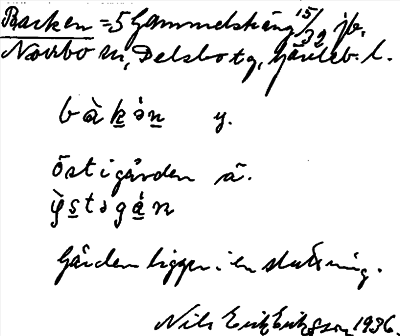 Backen = 5 Gammelsträng 15/32 jb.
Norrbo sn, Delsbo tg, Gävleb. l.
bàkən y.
östigården ä.
ỳstəgán
Gården ligger i en sluttning.
Nils Erik Eriksson 1936.